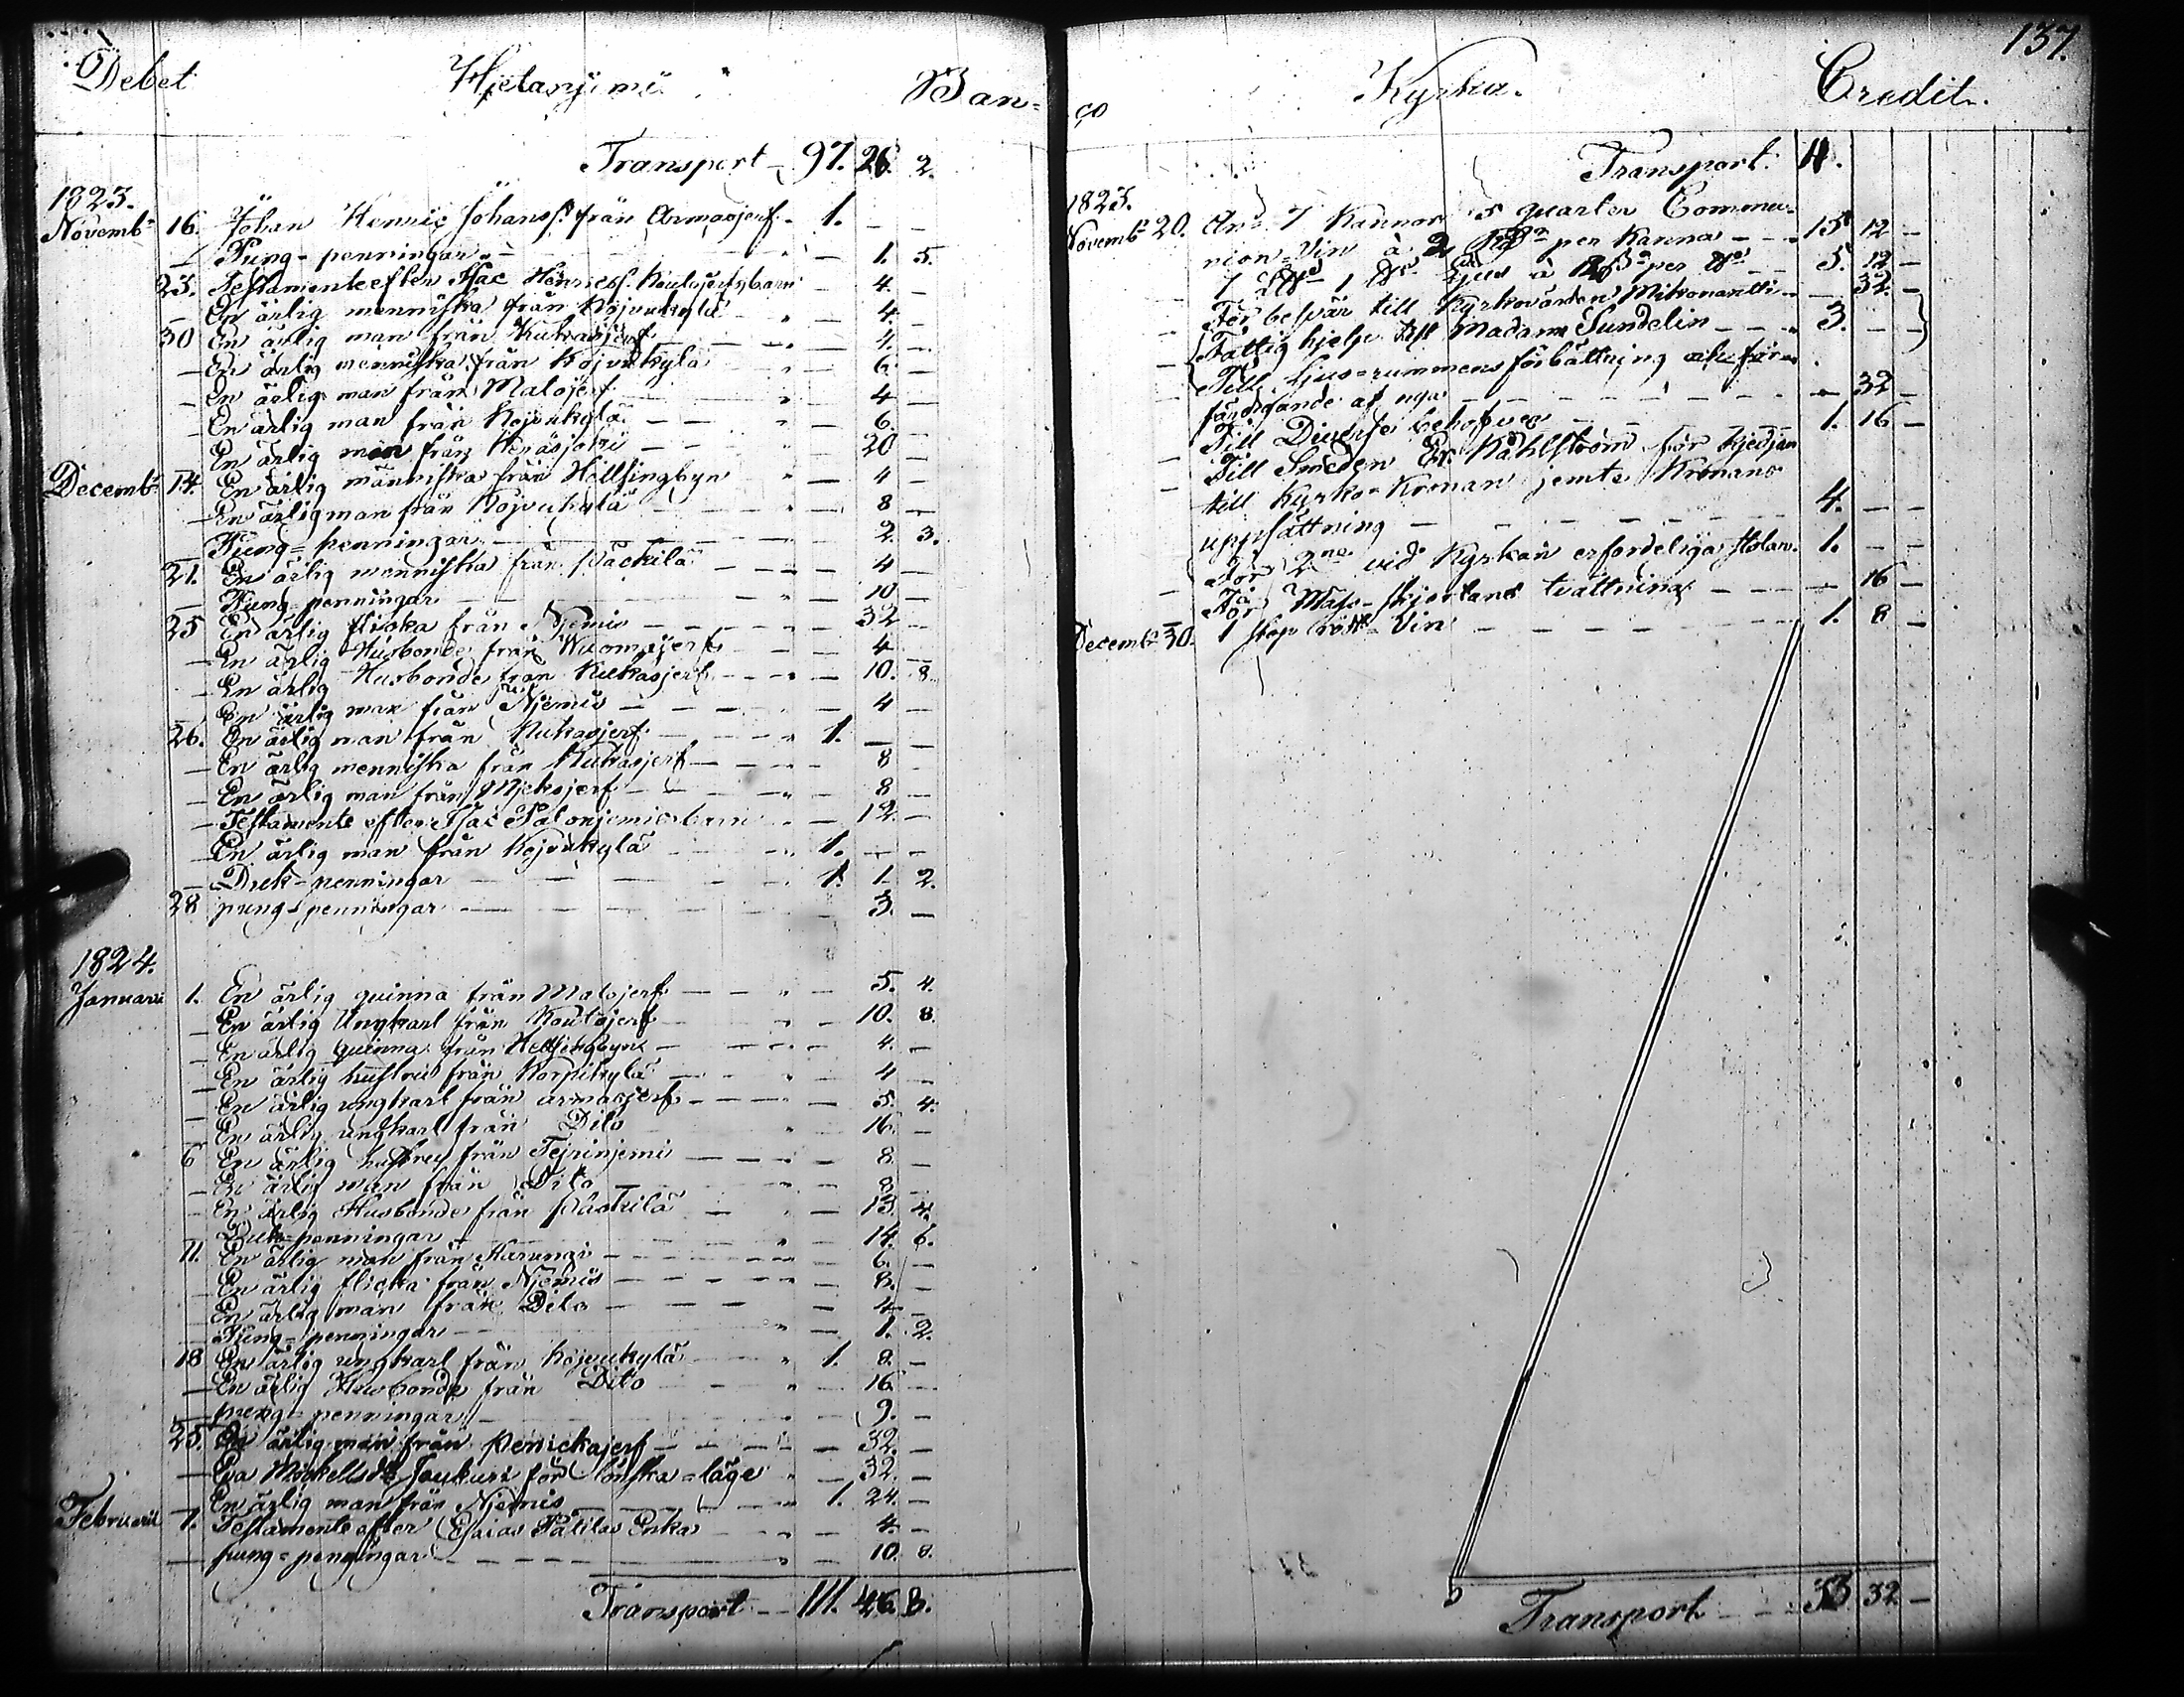 Debet Hjetanjemi Ban=
Transport - 97. 26. 2.
1823.
Novemb. 16. Johan Henric Johanss. från Armasjerf - 1. - -
- Pung-penningar - - 1. 5.
23. Testamente efter Isac Henricss. Koutojerfvbarn - 4. -
- En ärlig menniska från Kojvukylä - 4. -
30 En ärlig man från Kukasjerf - 4. -
- En ärlig menniska från Kojvukylä - 6. -
- En ärlig man från Matojerf - 4 -
- En ärlig man från Kojvukylä - 6. -
En ärlig man från Heräsjoki - 20 -
Decemb. 14. En ärlig människa från Hellsingbyn - 4 -
- En ärlig man från Kojvukylä - 8 -
- Pung=penningar - 2. 3.
21. En ärlig menniska från Päckilä - 4 -
- Pung=penningar - 10 -
25 En ärlig flicka från Njemis - 32 -
- En ärlig Husbonde från Wuomajerf - 4 -
- En ärlig Husbonde från Kukasjerf - 10. 8.
- En ärlig man från Njemis - 4 -
26. En ärlig man från Kukasjerf - 1. - -
- En ärlig menniska från Kukasjerf - 8 -
- En ärlig man från Mjekojerf - 8 -
- Testamente efter Isac Palonjemisbarn - 12. -
- En ärlig man från Kojvukylä 1. - -
- Duk-penningar - 1. 1. 2.
28 pung-penningar - 3. -
1824.
Januari 1. En ärlig quinna från Matojerf - 5. 4.
- En ärlig Ungkarl från Koutojerf - 10. 8.
- En ärlig quinna från Hellsingbyn - 4. -
- En ärlig hustru från Korpikylä - 4 -
- En ärlig ungkarl från armasjerf - 5. 4.
- En ärlig ungkarl från Dito - 16. -
6 En ärlig hustru från Tejrinjemi - 8. -
- En ärlig man från Dito - 8 -
- En ärlig Husbonde från Päckilä - 13. 4.
Duk-penningar - 14. 6.
11. En ärlig man från Karungi - 6. -
- En ärlig flicka från Njemis - 8. -
- En ärlig man från Dito - 4 -
- Pung-penningar - 1. 2.
18 En ärlig ungkarl från Kojvukylä 1. 8. -
- En ärlig Husbonde från Dito - 16. -
- pung-penningar - 9. -
25. En ärlig man från Penickajerf - 32. -
- Eva Mickelsdr Jaukuri för lönska-läge - 32. -
En ärlig man från Njemis 1. 24. -
Februarii 1. Testamente efter Esaias Pätilas Enka - 4. -
- pung=penningar - 10. 8.
Transport - 111. 46. 3.
co Kyrka. Credit. 137.
Transport. 4.
1823.
Novemb. 20. 7 Kannor 5 quarter Commu-
nion-Vin à 2 per Kanna - 15 12 -
Ljus à per - 5. 12 -
För besvär till Kyrkovärden Mikonantti - 32. -
Fattig hjelp till Madam Sundelin - 3. - -
Till Ljus-rummens förbättring och för-
färdigande af nya - 32 -
Till Diverse behofver - 1. 16 -
Till Smeden Er. Kåhlström för kjedjan
till Kyrko-Kronan jemte Kronans
uppsättning - 4. - -
För 2ne vid Kyrkan erforderliga stolar. 1. - -
För Mäss-skjortans tvättning - 16 -
Decemb. 30. 1 stop rödt Vin - 1. 8 -
Transport - 33. 32. -